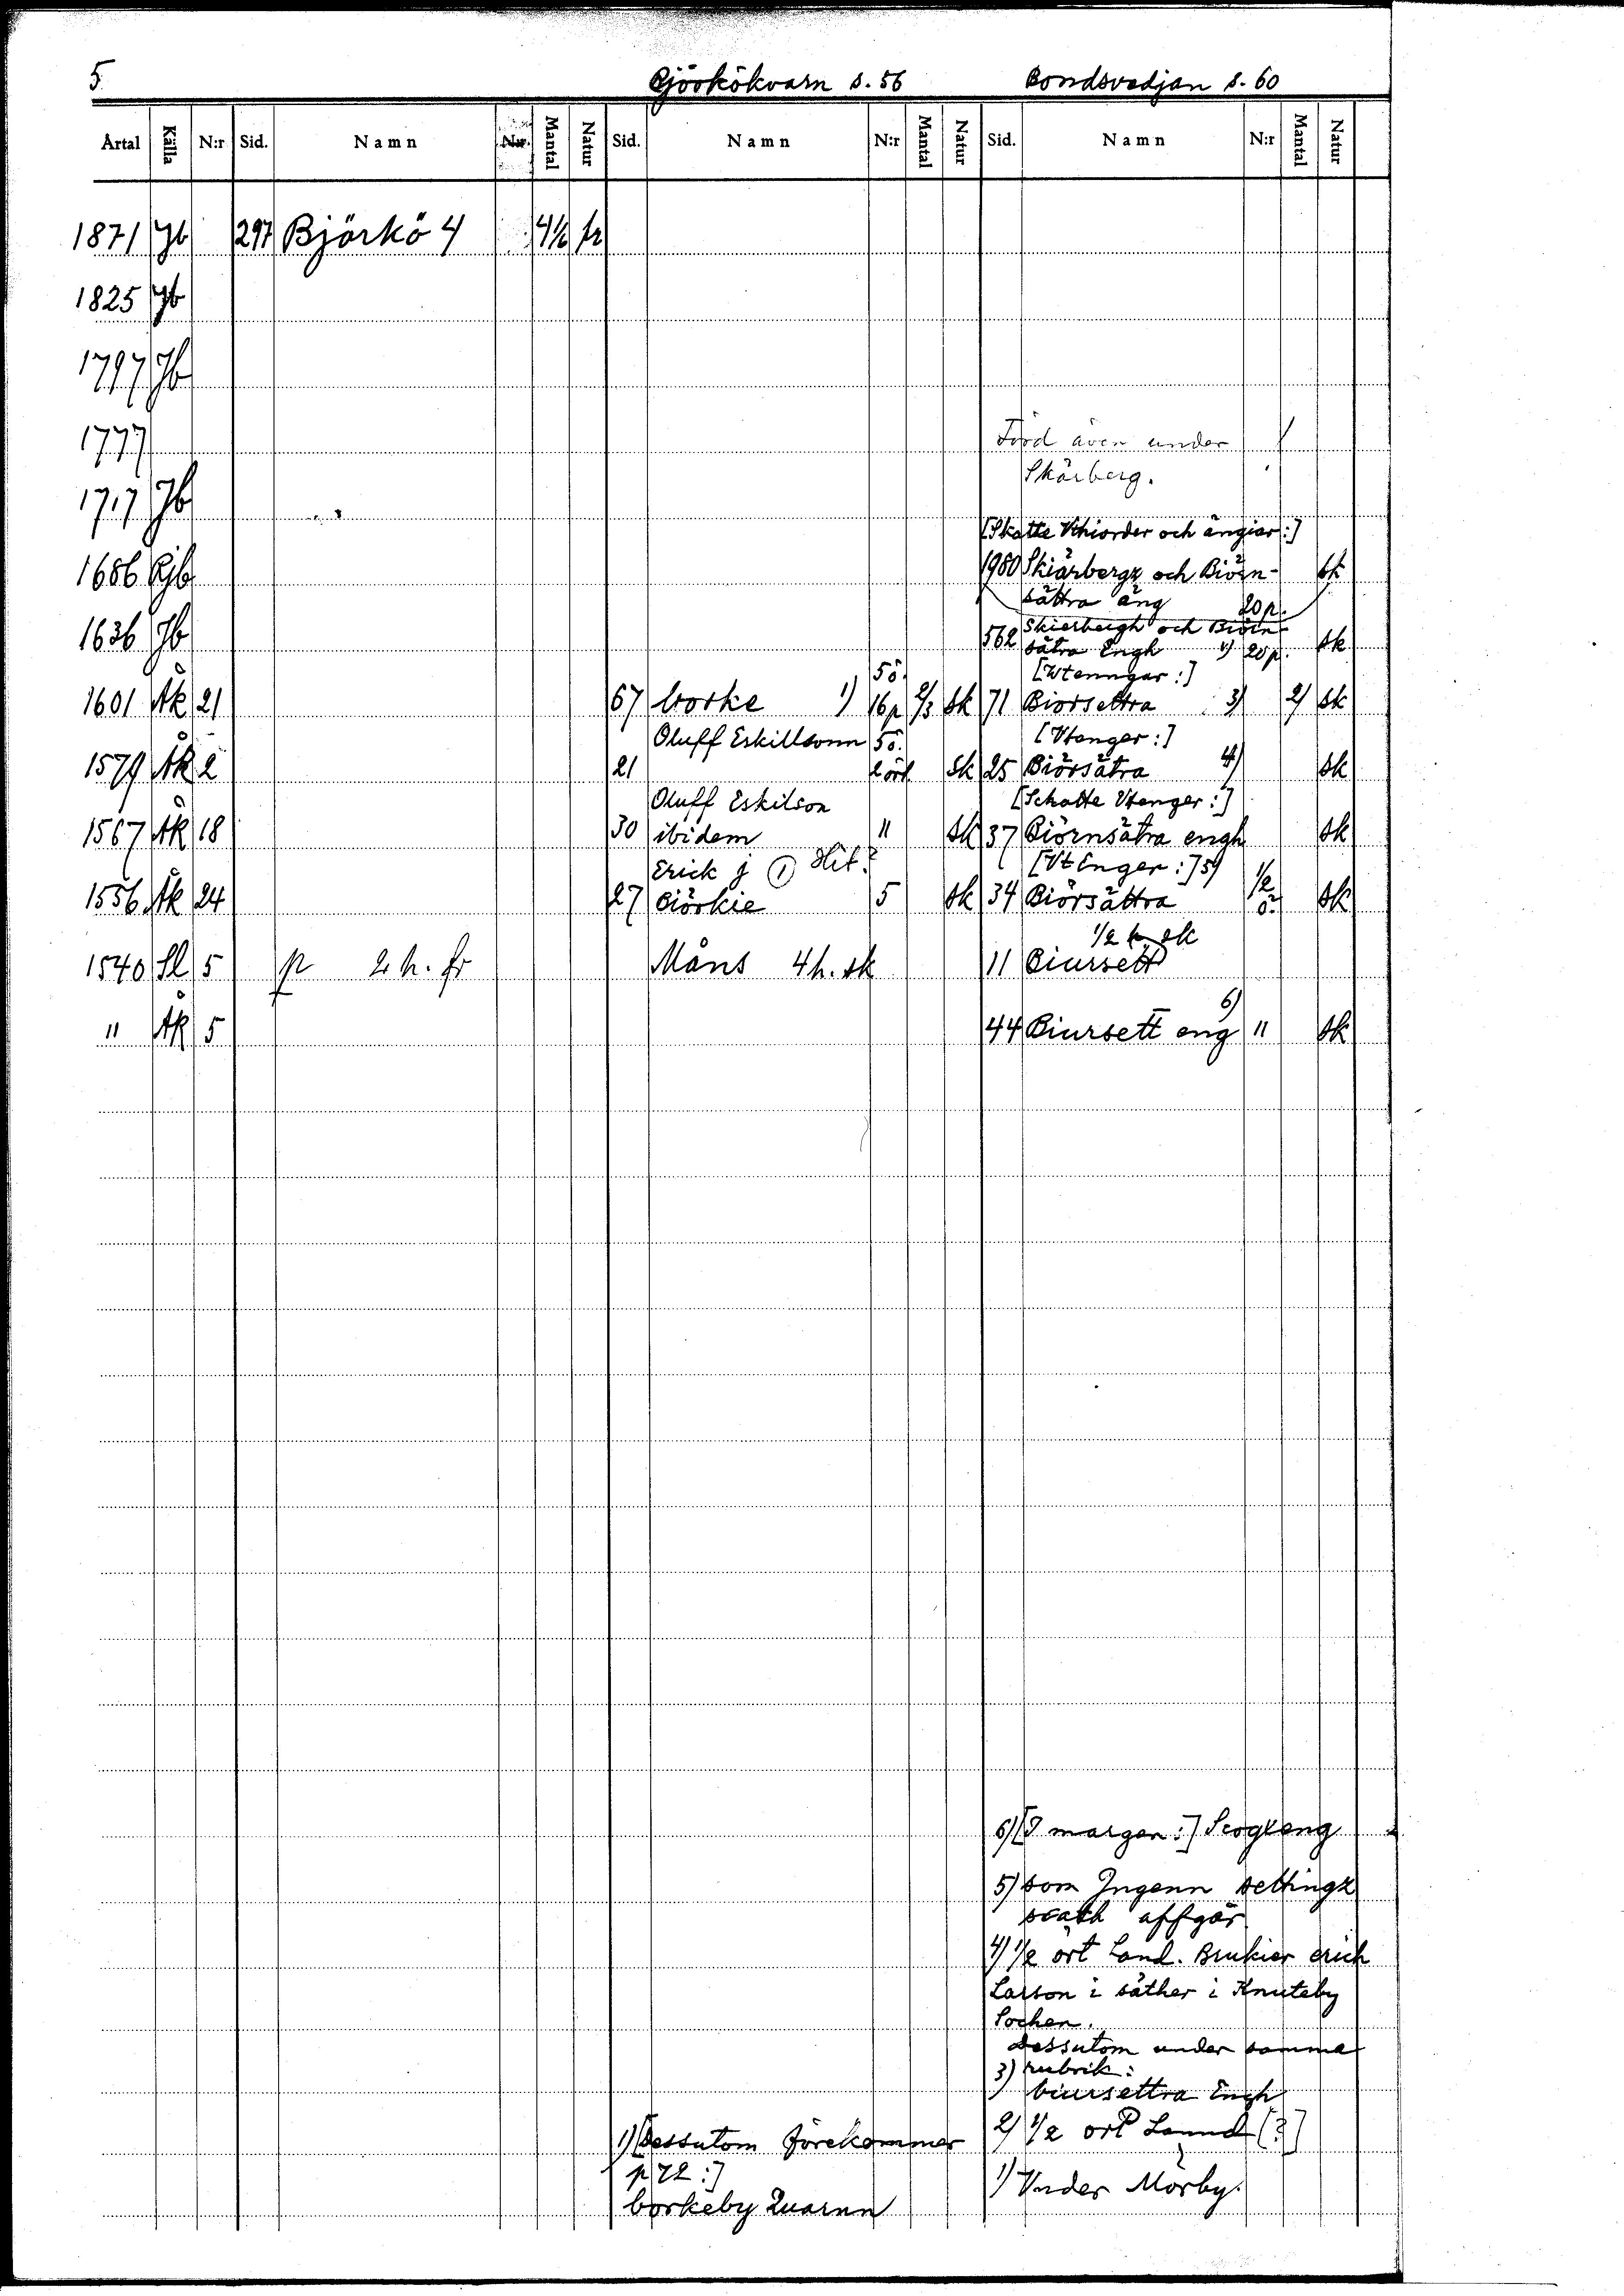 5.
Björkökvarn s. 56 Bondsvedjan s. 60
Årtal Källa N:r Sid. Namn N:r Mantal Natur Sid. Namn N:r Mantal Natur Sid. Namn N:r Mantal Natur
1871 Jb 297 Björkö 4 4 1/6 fr
1825 Jb
1797 Jb
1777 Förd även under
Skärberg.
1717 Jb
[Skatte Vthiorder och ängiar:]
1686 Rjb 1980 Skiärbergz och Biörn- sk
sättra äng 20 p.
1636 Jb 562 Skierbergh och Biörn-
sätra Engh 1) 20 p. sk
5ö. [Wtenngar:]
1601 Åk 21 67 borke 1) 16p 2/3 sk 71 Biorsettra 3) 2) sk
Oluff Eskillsonn 5ö. [Vtenger:]
1579 Åk 2 21 2 örl sk 25 Biörsätra 4) sk
Oluff Eskilson [Schatte Vtenger:]
1567 Åk 18 30 ibidem " sk 37 Biörnsätra engh sk
Erick j ① Hit? [Vt Enger:] 5)
1556 Åk 24 27 Biörkie 5 sk 34 Biörsättra 1/2 ö. sk
1/2 sk
1540 Sl 5 p 2 h. fr Måns 4 h. sk 11 Biursett
" Åk 5 44 Biursett eng 6) " sk
6) [I margen:] Scogxeng
5) som Jngenn settingz
scath affgår
4) 1/2 ört Land. Brukier erich
Larson i säther i Knuteby
Sochen.
Dessutom under samma
3) rubrik:
biursettra Engh
1) [Dessutom förekommer 2) 1/2 ort Lannd [?]
p 72:] 1) Vnder Mörby.
borkeby Quarnn